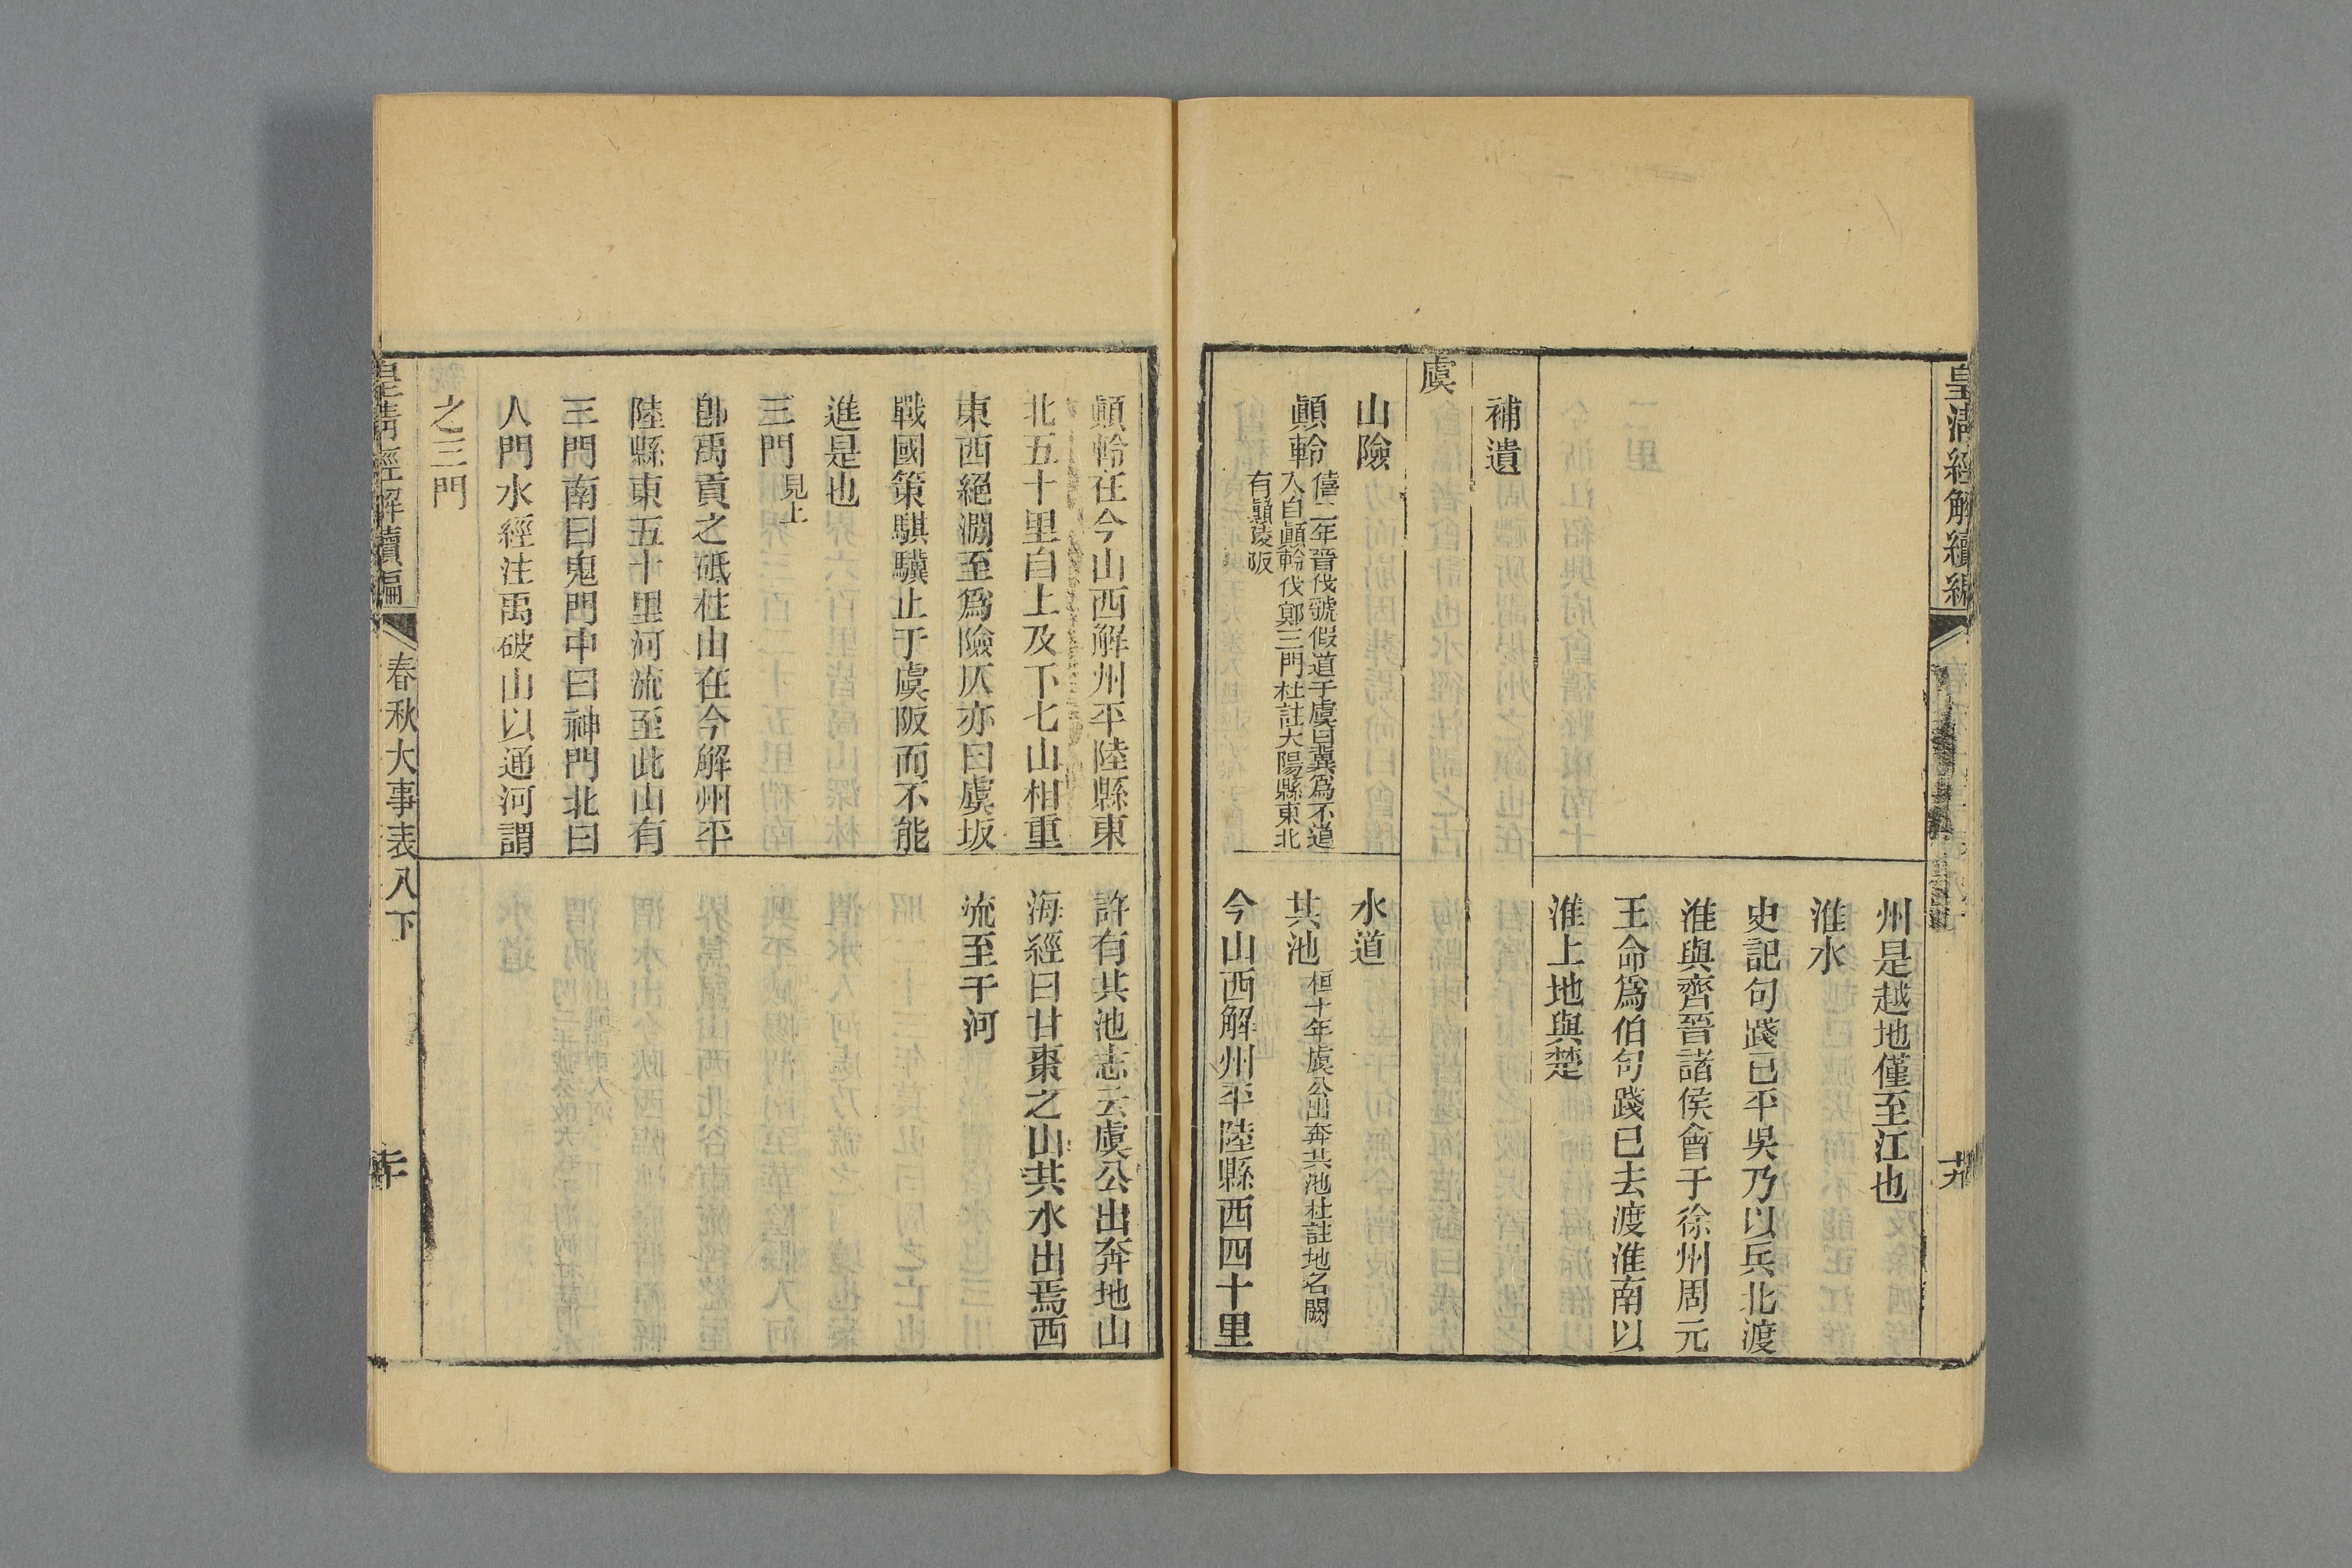 皇清經解續編
州是越地僅至江也
淮水
史記句踐已平吳乃以兵北渡
淮與齊晉諸侯會于徐州周元
王命爲伯句踐已去渡淮南以
淮上地與楚
補遺
虞
山險
顚軨
僖二年晉伐虢假道于虞曰冀爲不道
入自顚軨伐鄍三門杜註大陽縣東北
有顚軨阪
水道
共池
桓十年虞公出奔共池杜註地名闕
今山西解州平陸縣西四十里
顚軨在今山西解州平陸縣東
北五十里自上及下七山相重
東西絕澗至爲險仄亦曰虞坂
戰國策騏驥止于虞阪而不能
進是也
三門
見上
卽禹貢之砥柱山在今解州平
陸縣東五十里河流至此山有
三門南曰鬼門中曰神門北曰
人門水經注禹破山以通河謂
之三門
許有共池志云虞公出奔地山
海經曰甘棗之山共水出焉西
流至于河
皇清經解續編
春秋大事表八下